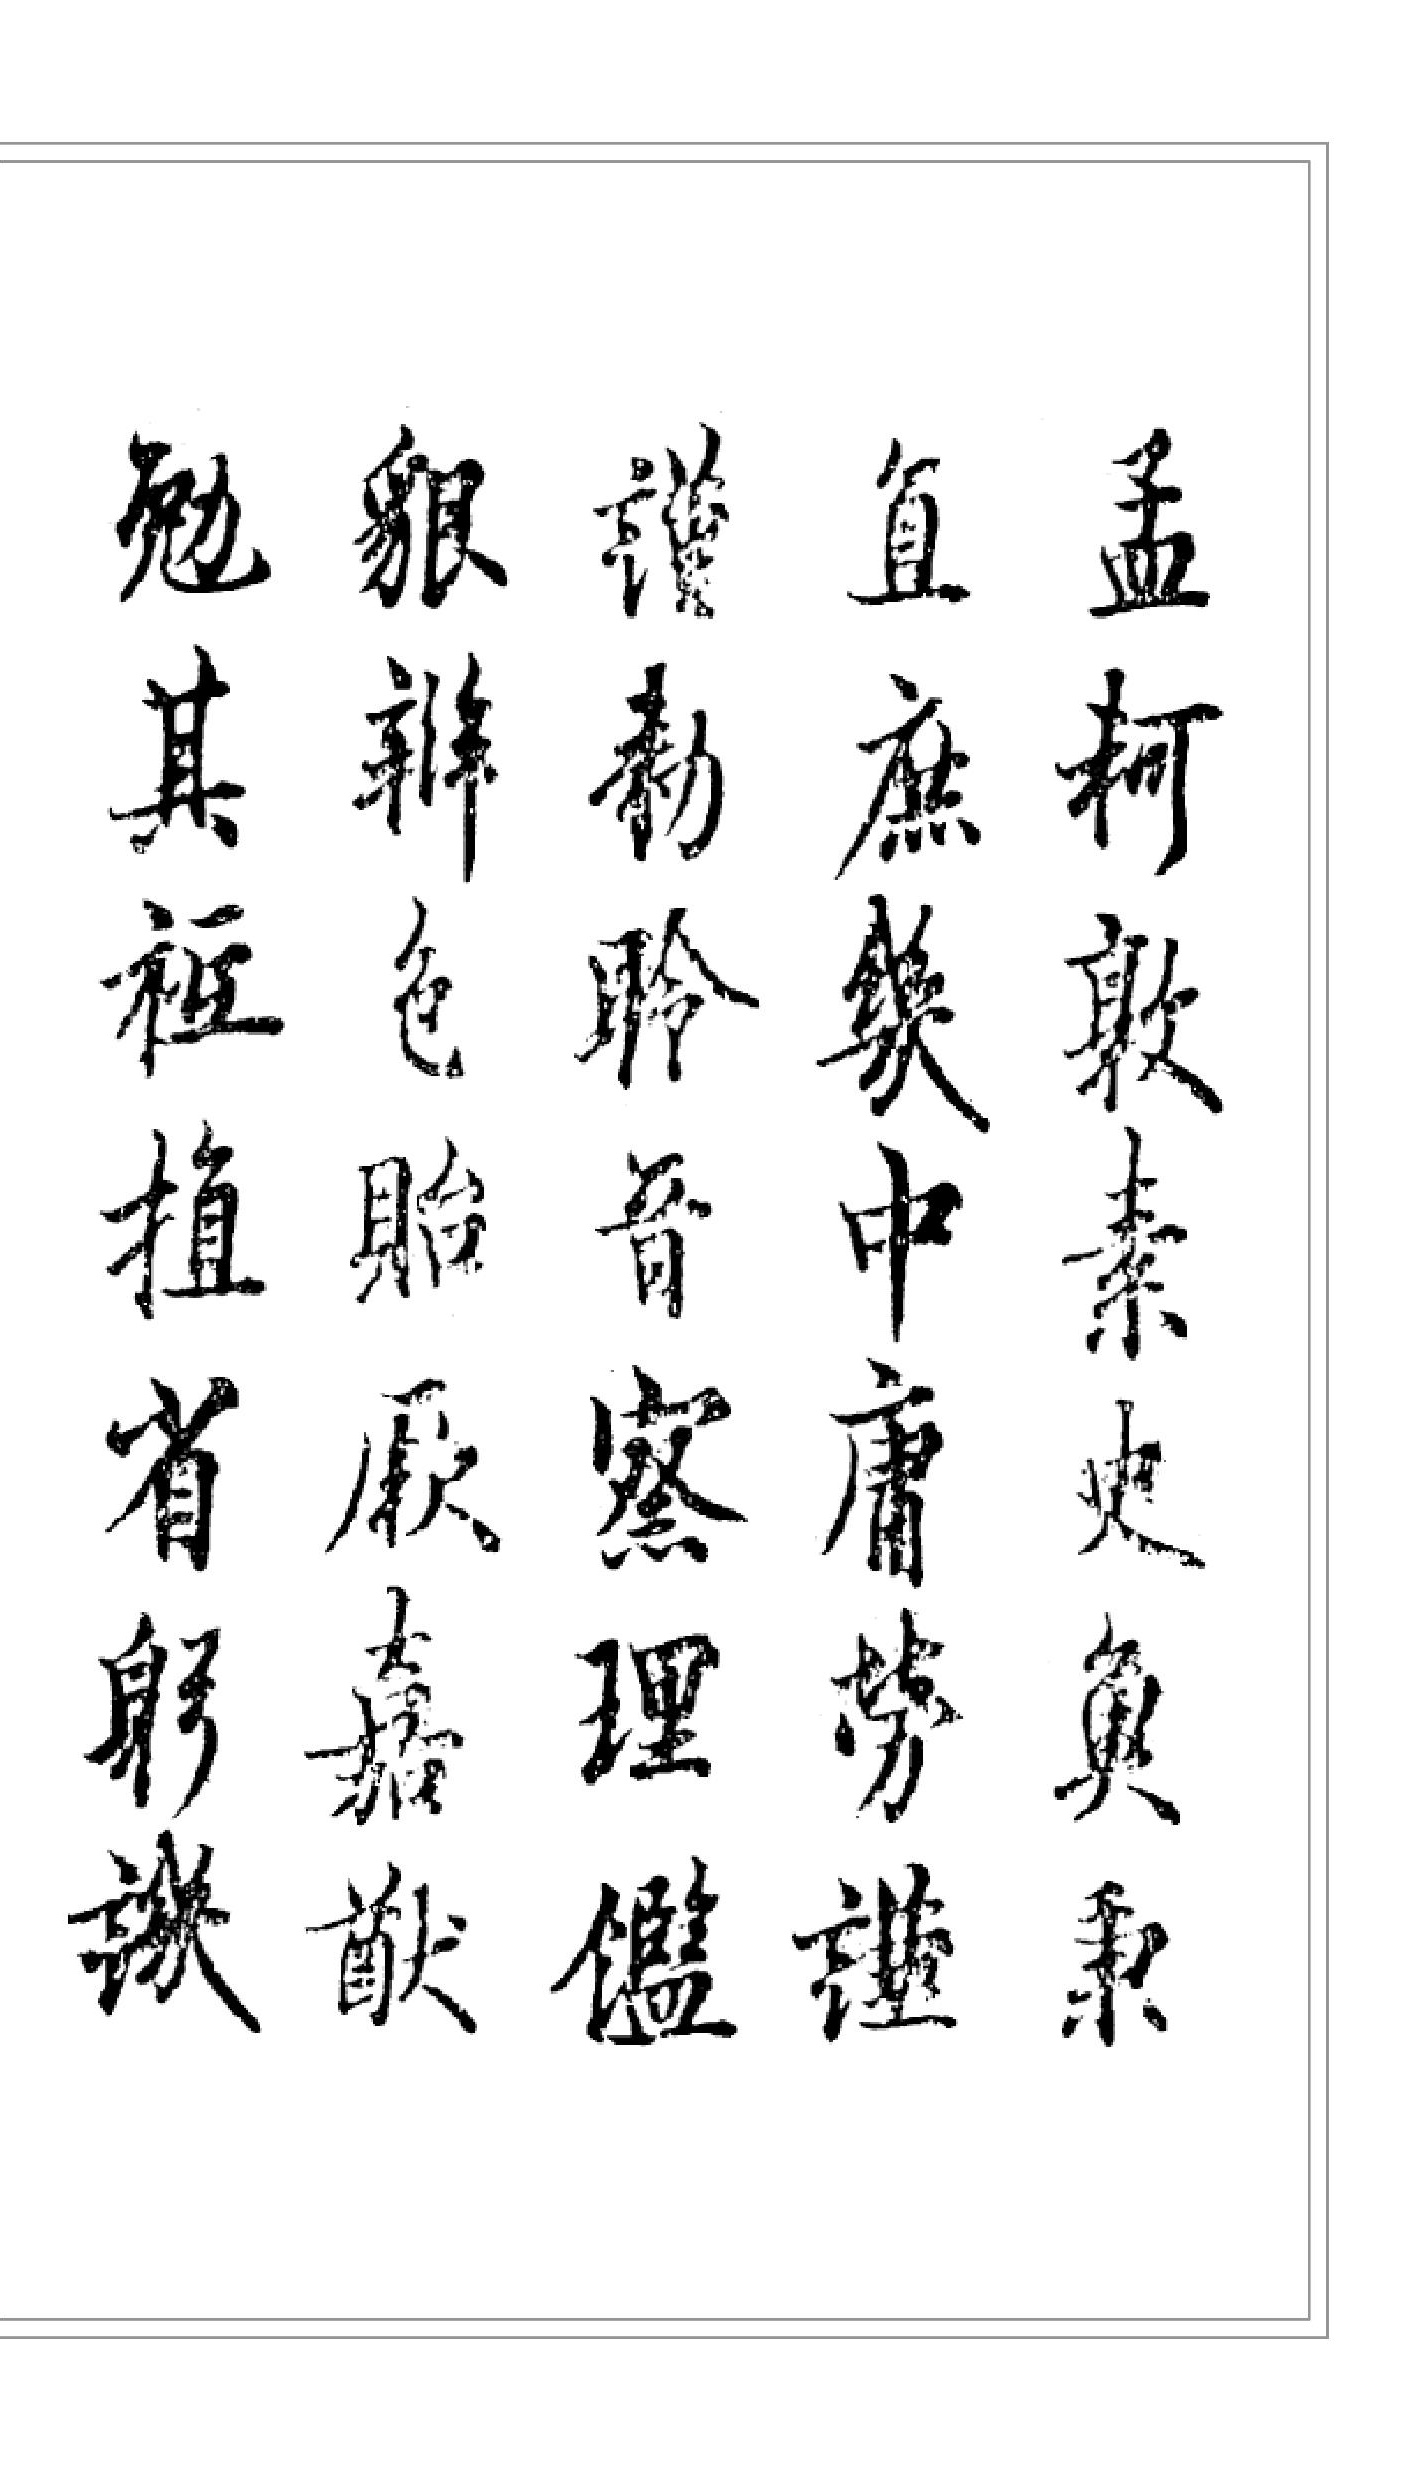 孟軻敦素史魚秉
直庶幾中庸勞謙
謹勑聆音察理鑑
貌辯色貽厥嘉猷
勉其祗植省躬譏